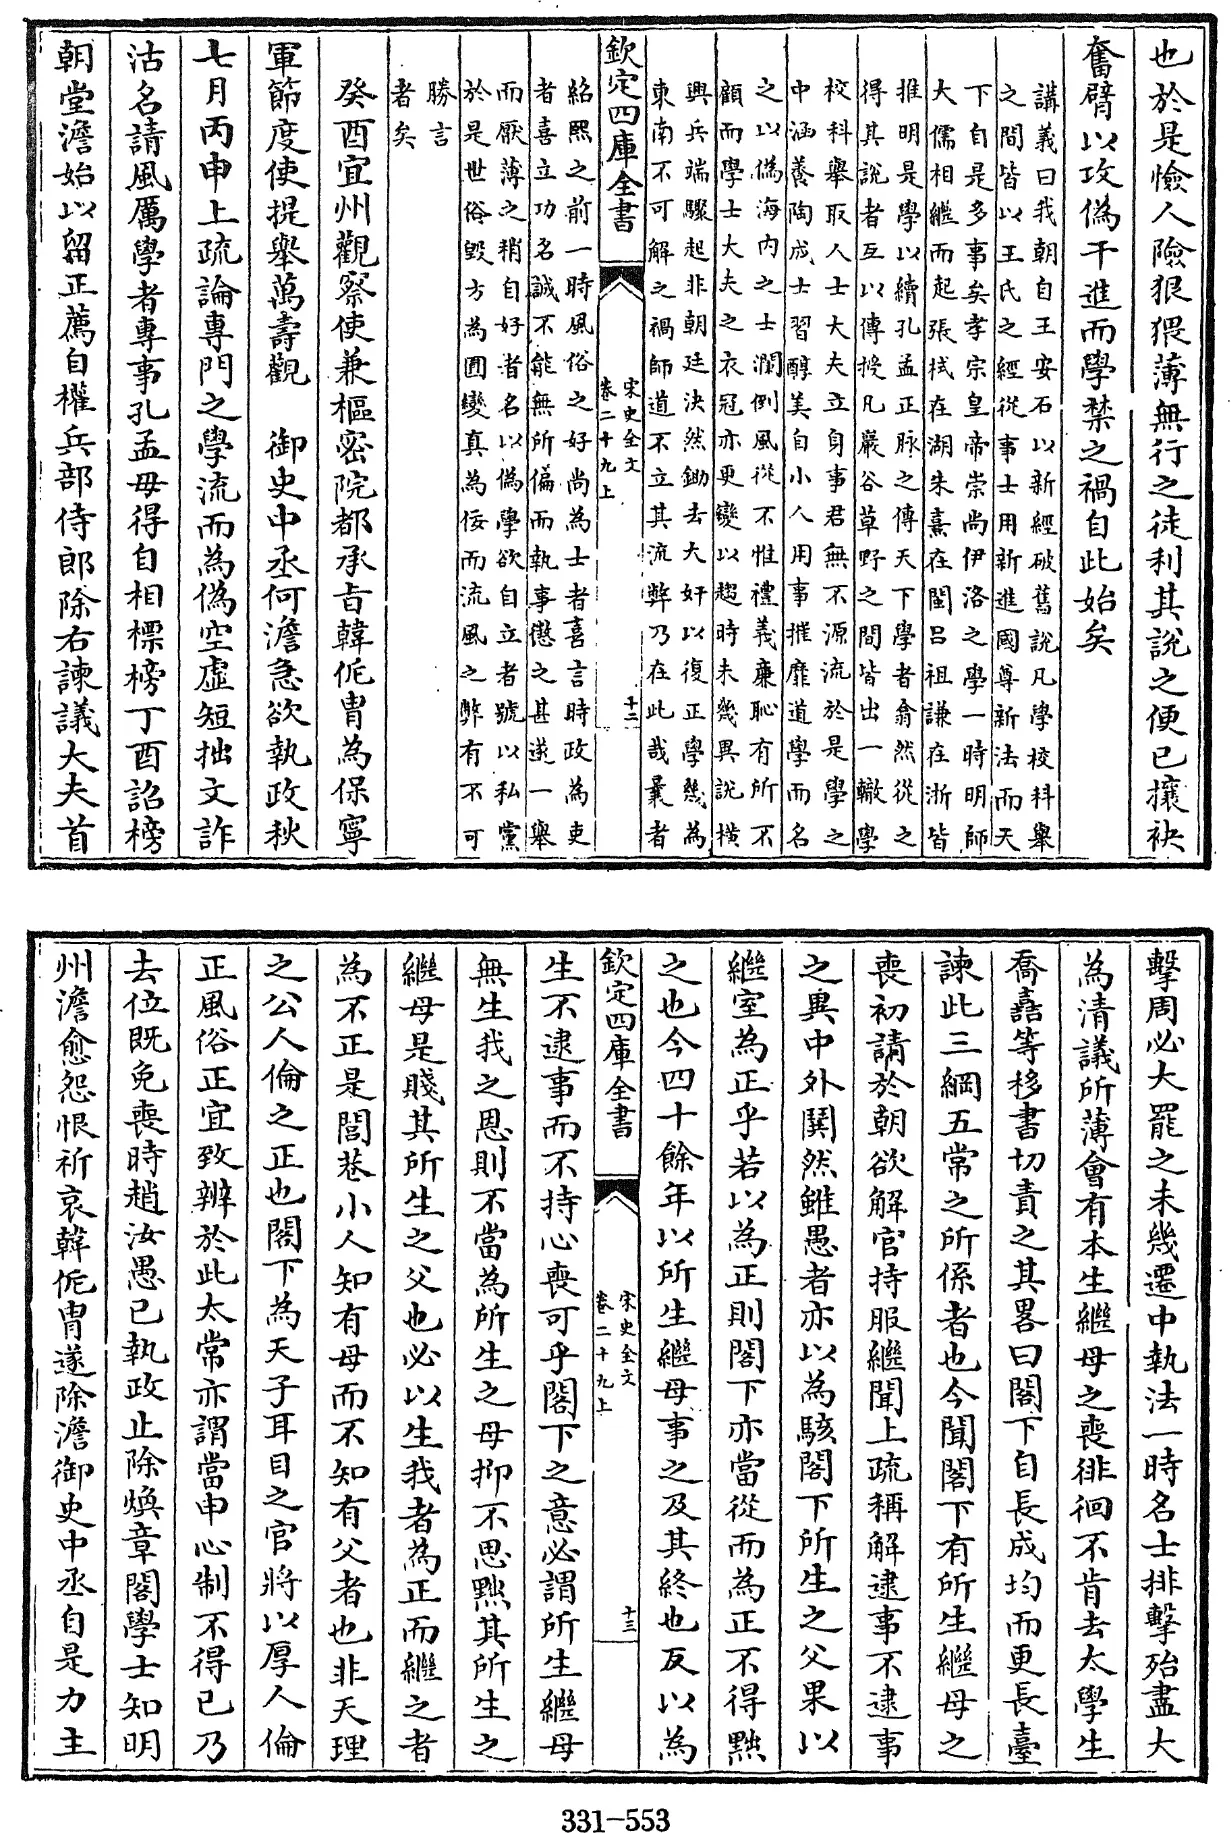 也於是憸人險狠猥薄無行之徒利其說之便已攘袂
奮臂以攻偽干進而學禁之禍自此始矣
講義曰我朝自王安石以新經破舊說凡學校科舉
之間皆以王氏之經從事士用新進國尊新法而天
下自是多事矣孝宗皇帝崇尚伊洛之學一時明師
大儒相繼而起張栻在湖朱熹在閩呂祖謙在浙皆
推明是學以續孔孟正脉之傳天下學者翕然從之
得其說者互以傳授凡巖谷草野之間皆出一轍學
校科舉取人士大夫立身事君無不源流於是學之
中涵養陶成士習醇美自小人用事摧靡道學而名
之以偽海内之士瀾倒風從不惟禮義廉恥有所不
顧而學士大夫之衣冠亦更變以趨時未幾異說橫
興兵端驟起非朝廷決然鋤去大奸以復正學幾為
東南不可解之禍師道不立其流弊乃在此哉曩者
欽定四庫全書
宋史全文
卷二十九上
十二
紹熙之前一時風俗之好尚為士者喜言時政為吏
者喜立功名誠不能無所偏而執事懲之甚遂一舉
而厭薄之稍自好者名以偽學欲自立者號以私黨
於是世俗毀方為圓變真為佞而流風之弊有不可
勝言
者矣
癸酉宜州觀察使兼樞密院都承㫖韓侂胄為保寧
軍節度使提舉萬壽觀 御史中丞何澹急欲執政秋
七月丙申上疏論專門之學流而為偽空虛短拙文詐
沽名請風厲學者專事孔孟毋得自相標榜丁酉詔榜
朝堂澹始以留正薦自權兵部侍郎除右諫議大夫首
擊周必大罷之未幾遷中執法一時名士排擊殆盡大
為清議所薄會有本生繼母之喪徘徊不肯去太學生
喬嚞等移書切責之其畧曰閣下自長成均而更長臺
諫此三綱五常之所係者也今聞閣下有所生繼母之
喪初請於朝欲解官持服繼聞上疏稱解逮事不逮事
之異中外鬨然雖愚者亦以為駭閣下所生之父果以
繼室為正乎若以為正則閣下亦當從而為正不得黜
之也今四十餘年以所生繼母事之及其終也反以為
欽定四庫全書
宋史全文
卷二十九上
十三
生不逮事而不持心喪可乎閣下之意必謂所生繼母
無生我之恩則不當為所生之母抑不思黜其所生之
繼母是賤其所生之父也必以生我者為正而繼之者
為不正是閭巷小人知有母而不知有父者也非天理
之公人倫之正也閣下為天子耳目之官將以厚人倫
正風俗正宜致辨於此太常亦謂當申心制不得已乃
去位既免喪時趙汝愚已執政止除煥章閣學士知明
州澹愈怨恨祈哀韓侂胄遂除澹御史中丞自是力主
331-553